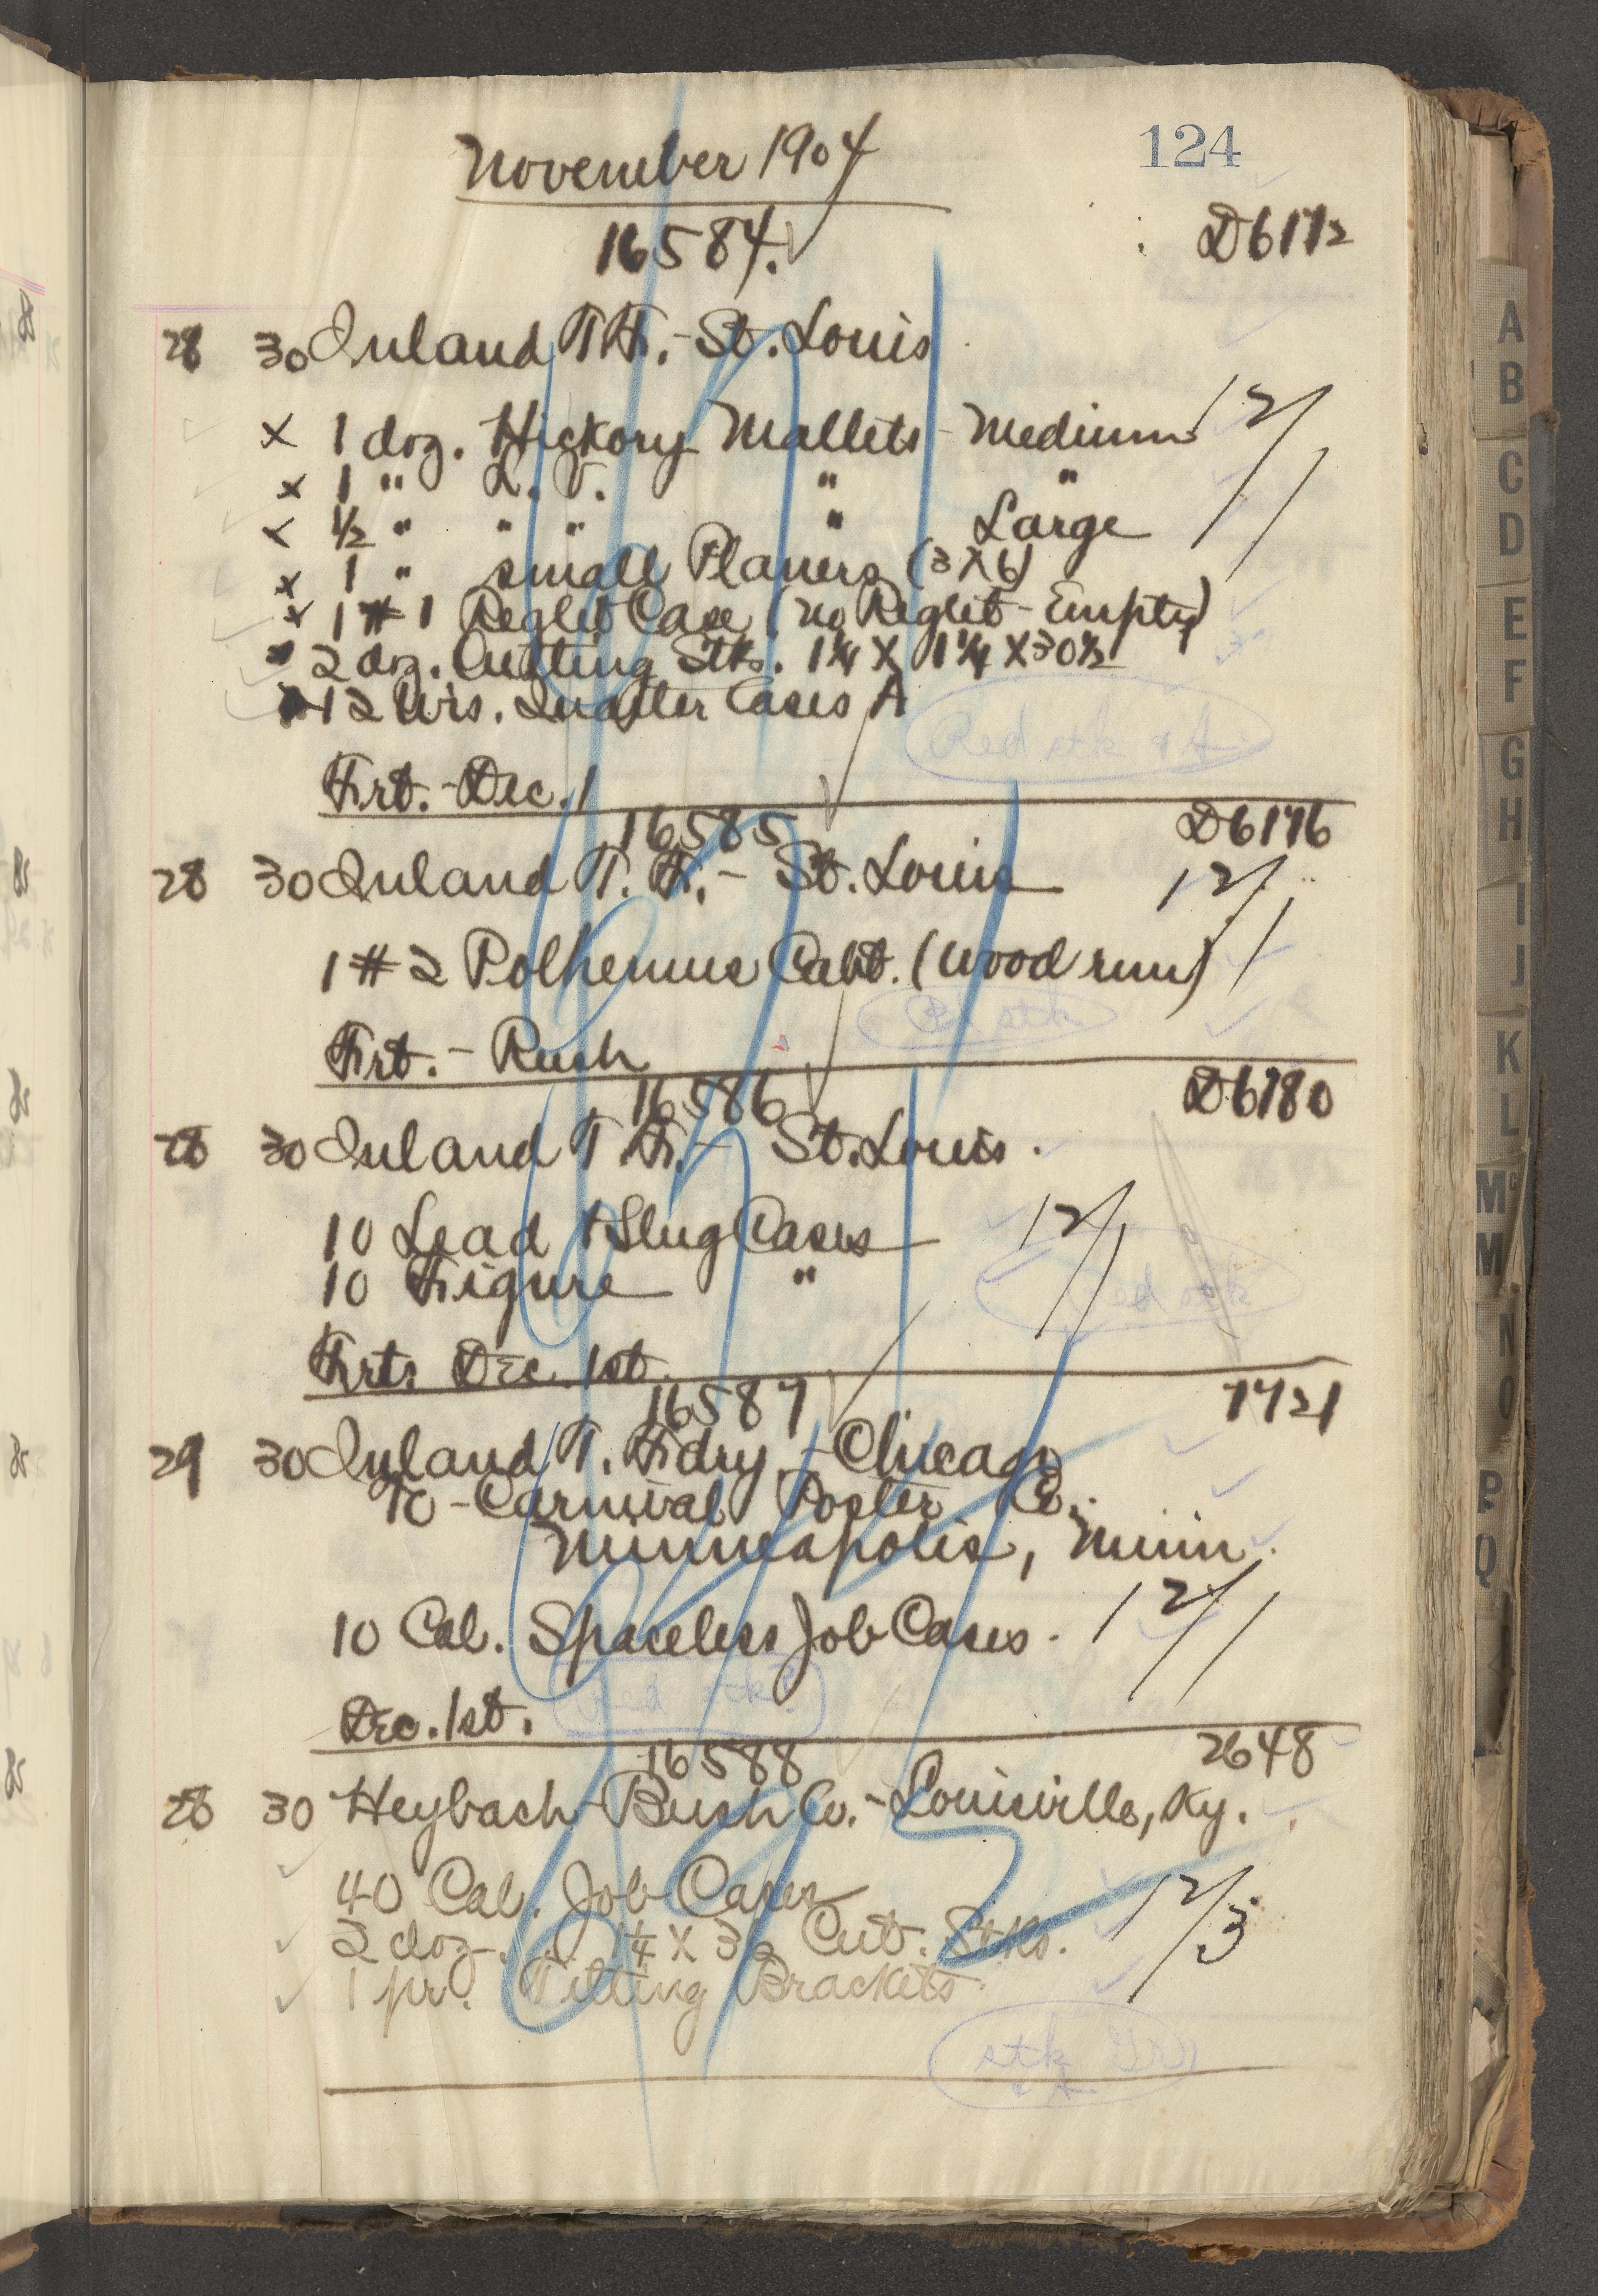 124
November 1904
16584. D6172
28 30 Inland T.F. - St. Louis
x 1 doz. Hickory Mallets - Medium 12/1
x 1 " L. V. " "
x 1/2 " " " " Large
x 1 " small Planers (3x6)
x 1 #1 Reglet Case (no Reglet - Empty)
2 doz. Cutting Stks. 1 1/4 x 1 1/4 x 30 1/2
12 Wis. Quarter Cases A
Red stk
Frt. - Dec. 1
16585 D6176
28 30 Inland T. F. - St. Louis 12/1
1 #2 Polhemus Cabt. (wood run)
Red stk
Frt. - Rush
16586 D6180
28 30 Inland T. F. - St. Louis.
10 Lead & Slug Cases 12/1
10 Figure "
Red stk
Frt. Dec. 1st.
16587 7721
29 30 Inland T. Fdry. - Chicago
To - Carnival Poster Co.
Minneapolis, Minn.
10 Cal. Spaceless Job Cases. 12/1
Red stk
Dec. 1st.
16588 2648
28 30 Heybach-Bush Co. - Louisville, Ky.
40 Cal. Job Cases 12/3
2 doz. 1 1/4 x 36 Cut. Stks.
1 pr. Tilting Brackets
stk
A
B
C
D
E
F
G
H
I
J
K
L
Mc
M
N
O
P
Q